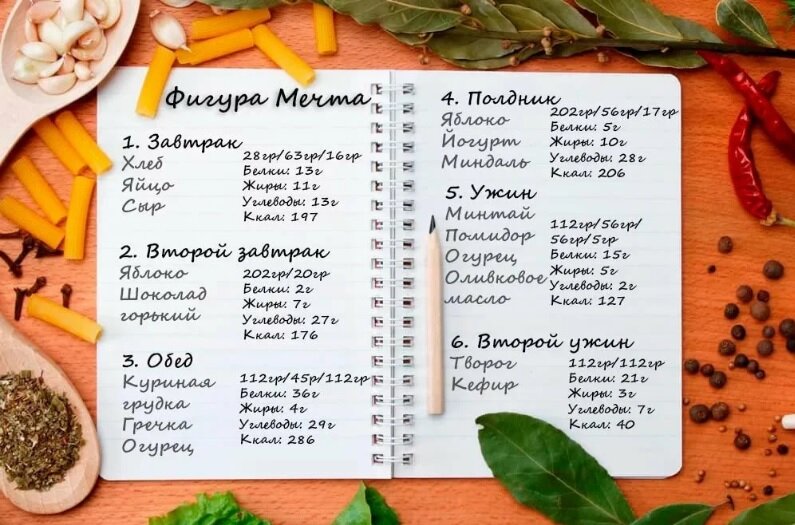 Фигура Мечта
1. Завтрак
Хлеб
Яйцо
Сыр
28гр/63гр/16гр
Белки: 13г
Жиры: 11г
Углеводы: 13г
Ккал: 197
2. Второй завтрак
Яблоко
Шоколад
горький
202гр/20гр
Белки: 2г
Жиры: 7г
Углеводы: 27г
Ккал: 176
3. Обед
Куриная
грудка
Гречка
Огурец
112гр/45р/112гр
Белки: 36г
Жиры: 4г
Углеводы: 29г
Ккал: 286
4. Полдник
Яблоко
Йогурт
Миндаль
202гр/56гр/17гр
Белки: 5г
Жиры: 10г
Углеводы: 28г
Ккал: 206
5. Ужин
Минтай
Помидор
Огурец
Оливковое
масло
112гр/56гр/
56гр/5гр
Белки: 15г
Жиры: 5г
Углеводы: 2г
Ккал: 127
6. Второй ужин
Творог
Кефир
112гр/112гр
Белки: 21г
Жиры: 3г
Углеводы: 7г
Ккал: 40